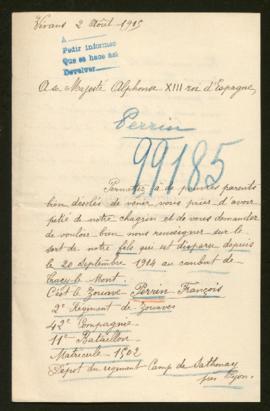 Vivans 2 Août 1915
A
Pedir informes
Que se hace así
Devolver
A sa Majesté Alphonse XIII roi d'Espagne,
Perrin
99185
Permettez à de pauvres parents
bien désolés de venir vous prier d'avoir
pitié de notre chagrin et de vous demander
de vouloir bien nous renseigner sur le
sort de notre fils qui est disparu depuis
le 20 Septembre 1914 au combat de
Tracy le Mont.
C'est le Zouave Perrin François
2e Régiment de Zouaves
42e Compagnie
11e Bataillon
Matricule 1502
Dépot du régiment Camp de Sathonay
près Lyon.